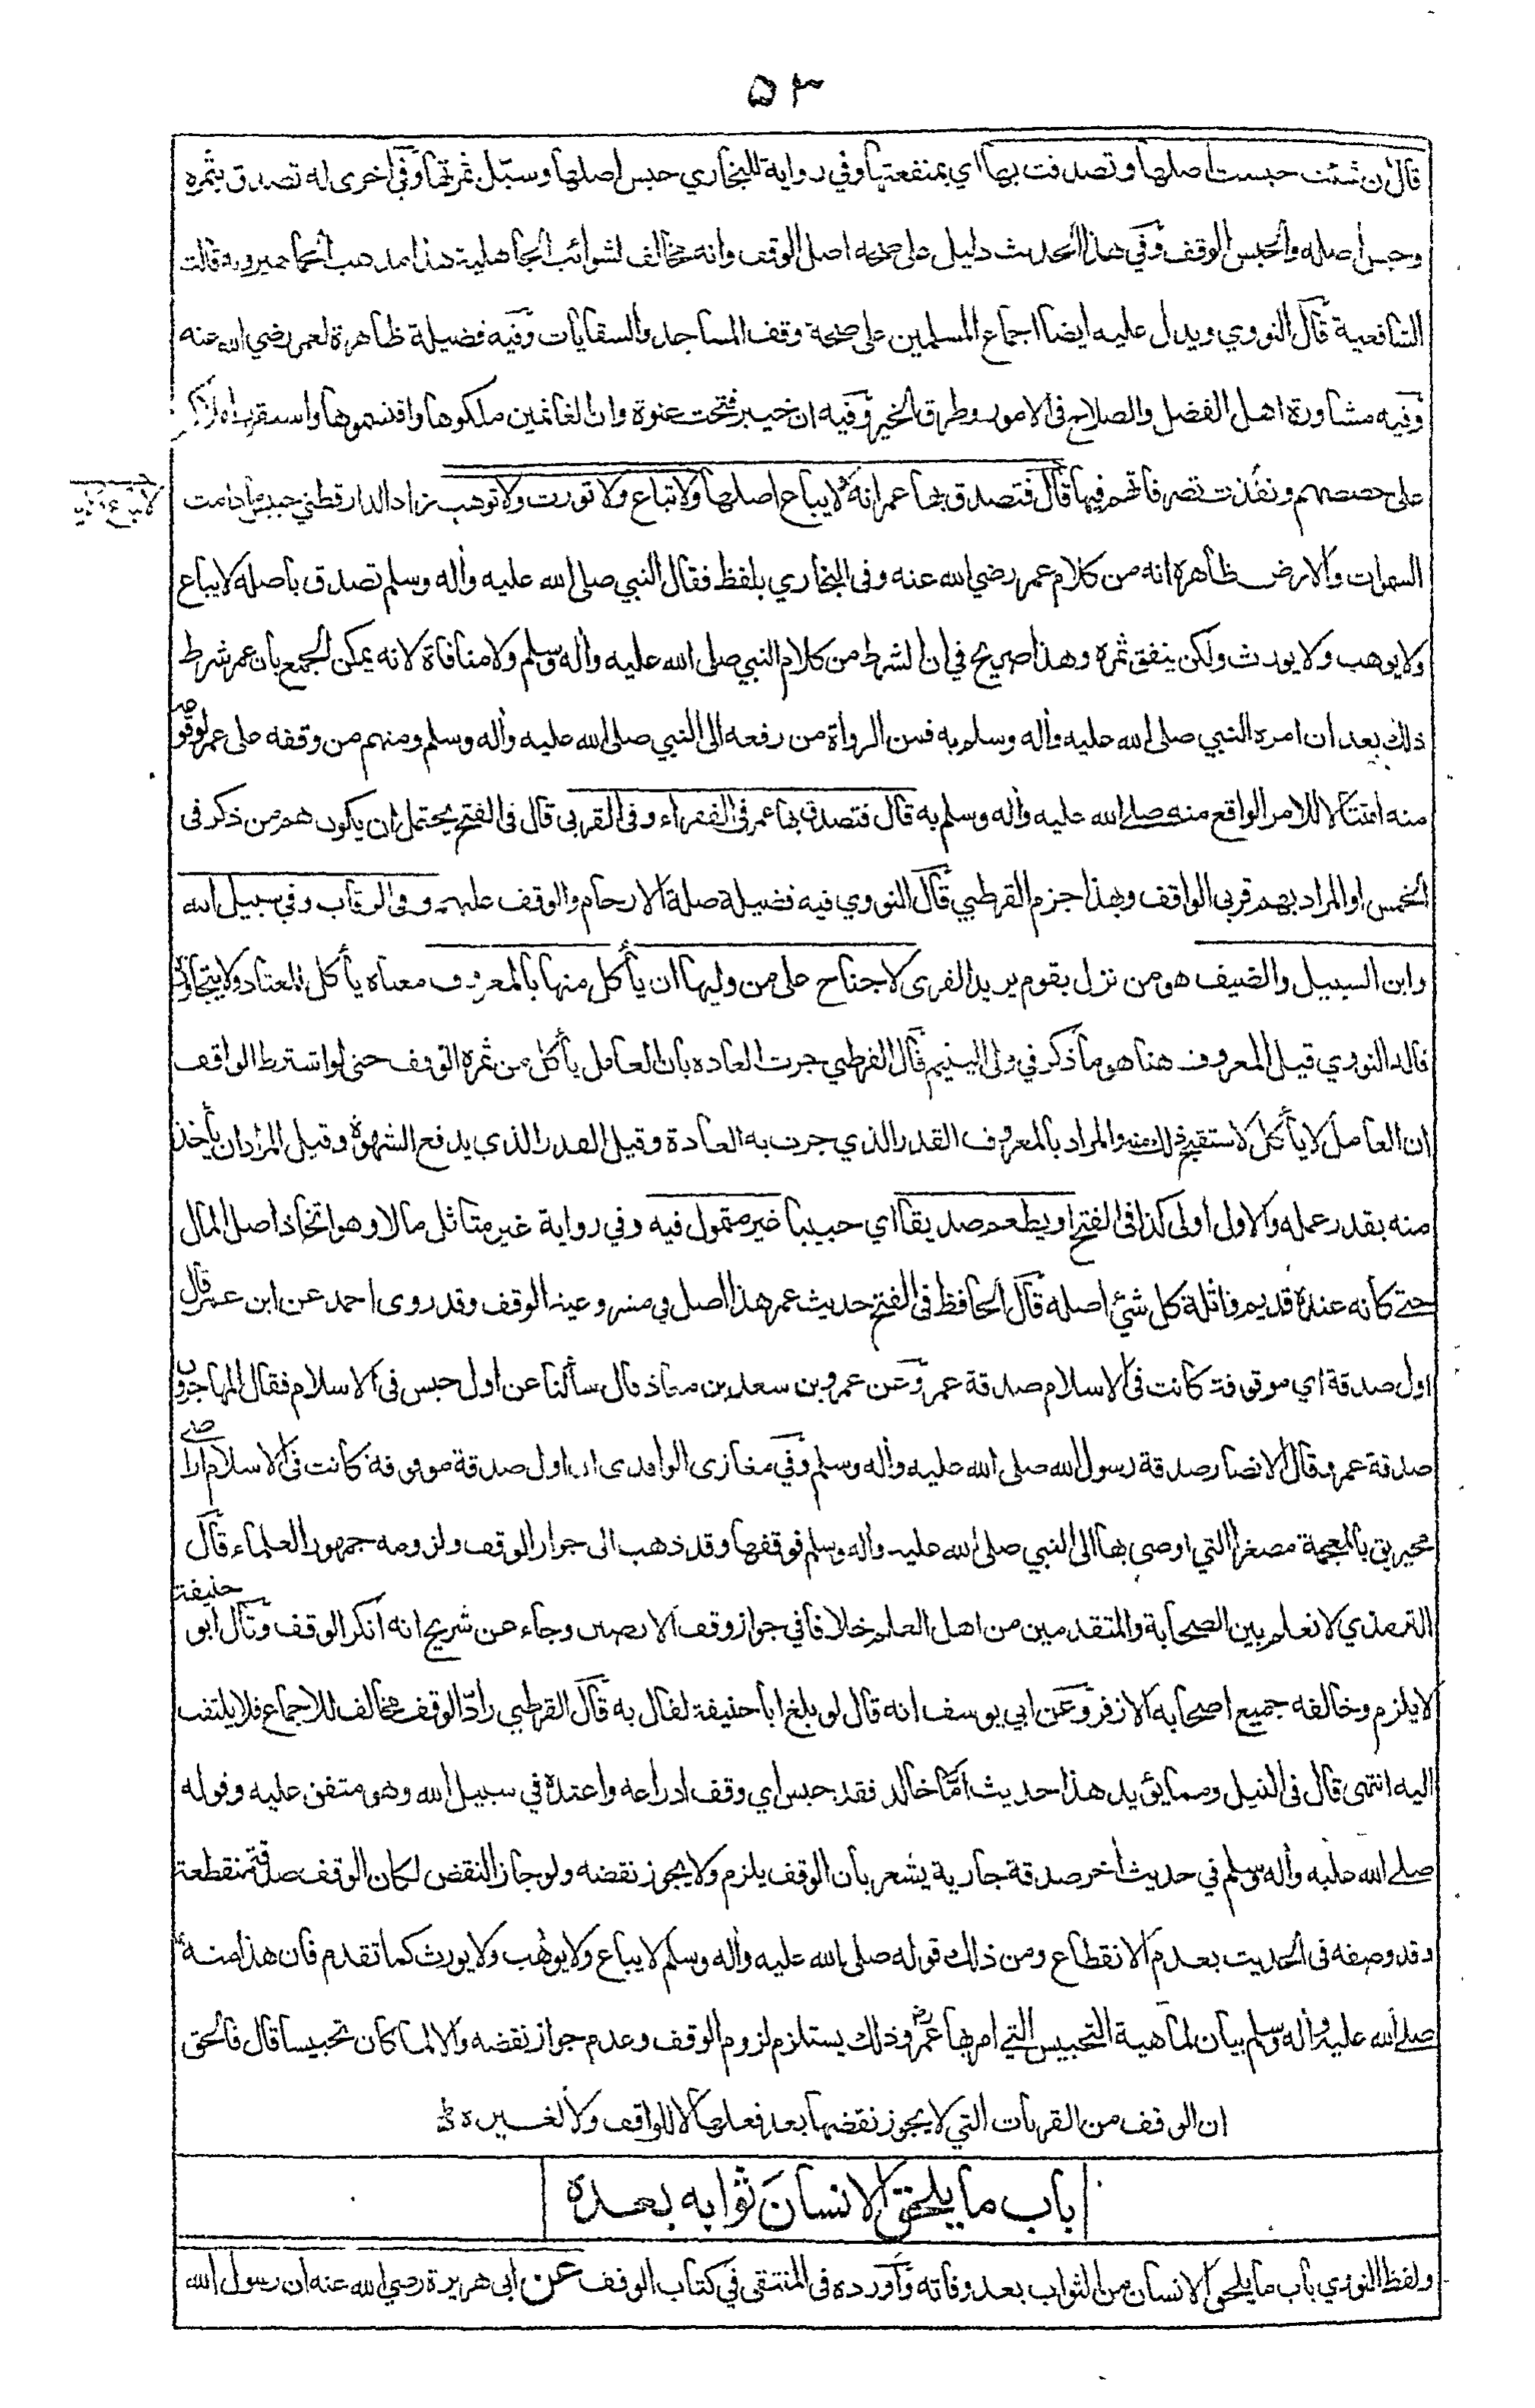 ٥٣
قال ان شئت حبست اصلها وتصدقت بها اي بمنفعتها وفي رواية للبخاري حبس اصلها وسبّل ثمرتها وفي اخرى له تصدق بثمره
وحبس اصله والحبس الوقف وفي هذا الحديث دليل على صحة اصل الوقف وانه مخالف لشوائب الجاهلية هذا مذهب الجماهير وبه قالت
الشافعية قال النووي ويدل عليه ايضا اجماع المسلمين على صحة وقف المساجد والسقايات وفيه فضيلة ظاهرة لعمر رضي الله عنه
وفيه مشاورة اهل الفضل والصلاح في الامور وطرق الخير وفيه ان خيبر فتحت عنوة وان الغانمين ملكوها واقتسموها واستقرت املاكهم
على حصصهم ونفذت تصرفاتهم فيها قال فتصدق بها عمر انه لا يباع اصلها ولا تباع ولا تورث ولا توهب زاد الدارقطني حبيس ما دامت
السموات والارض ظاهره انه من كلام عمر رضي الله عنه وفي البخاري بلفظ فقال النبي صلى الله عليه وأله وسلم تصدق بأصله لا يباع
ولا يوهب ولا يورث ولكن ينفق ثمره وهذا صريح في ان الشرط من كلام النبي صلى الله عليه وأله وسلم ولا منافاة لانه يمكن الجمع بان عمر شرط
ذلك بعد ان امره النبي صلى الله عليه وأله وسلم به فمن الرواة من رفعه الى النبي صلى الله عليه وأله وسلم ومنهم من وقفه على عمر لوقوعه
منه امتثالا للامر الواقع منه صلے الله عليه وأله وسلم به قال فتصدق بها عمر في الفقراء وفي القربى قال في الفتح يحتمل ان يكون هم من ذكر في
الخمس او المراد بهم قربى الواقف وبهذا جزم القرطبي قال النووي فيه فضيلة صلة الارحام والوقف عليهم وفي الرقاب وفي سبيل الله
وابن السبيل والضيف هو من نزل بقوم يريد القرى لا جناح على من وليها ان يأكل منها بالمعروف معناه يأكل المعتاد ولا يتجاوزه
قاله النووي قيل المعروف هنا هو ما ذكر في ولى اليتيم قال القرطبي جرت العادة بان العامل يأكل من ثمرة الوقف حتى لو اشترط الواقف
ان العامل لا يأكل لاستقبح ذلك منه والمراد بالمعروف القدر الذي جرت به العادة وقيل القدر الذي يدفع الشهوة وقيل المراد ان يأخذ
منه بقدر عمله والاول اولى كذا في الفتح او يطعم صديقا اي حبيبا غير متمول فيه وفي رواية غير متأثل مالا وهو اتخاذ اصل المال
حتے كأنه عنده قديم واثلة كل شئ اصله قال الحافظ في الفتح حديث عمر هذا اصل في مشروعية الوقف وقد روى احمد عن ابن عمر قال
اول صدقة اي موقوفة كانت في الاسلام صدقة عمر وعن عمرو بن سعد بن معاذ قال سألنا عن اول حبس في الاسلام فقال المهاجرون
صدقة عمر وقال الانصار صدقة رسول الله صلى الله عليه وأله وسلم وفي مغازى الواقدى ان اول صدقة موقوفة كانت في الاسلام اراضے
مخيريق بالمعجمة مصغرا التي اوصى بها الى النبي صلى الله عليه وأله وسلم فوقفها وقد ذهب الى جواز الوقف ولزومه جمهور العلماء قال
الترمذي لا نعلم بين الصحابة والمتقدمين من اهل العلم خلافا في جواز وقف الارضين وجاء عن شريح انه انكر الوقف وقال ابو حنيفة
لا يلزم وخالفه جميع اصحابه الا زفر وعن ابي يوسف انه قال لو بلغ ابا حنيفة لقال به قال القرطبي رادّ الوقف مخالف للاجماع فلا يلتفت
اليه انتهى قال في النيل ومما يؤيد هذا حديث امّا خالد فقد حبس اي وقف ادراعه واعتده في سبيل الله وهو متفق عليه وقوله
صلے الله عليه وأله وسلم في حديث أخر صدقة جارية يشعر بان الوقف يلزم ولا يجوز نقضه ولو جاز النقض لكان الوقف صدقة منقطعة
وقد وصفه في الحديث بعدم الانقطاع ومن ذلك قوله صلى الله عليه وأله وسلم لا يباع ولا يوهب ولا يورث كما تقدم فان هذا منه
صلے الله عليه وأله وسلم بيان لماهية التحبيس التي امر بها عمر وذلك يستلزم لزوم الوقف وعدم جواز نقضه والا لما كان تحبيسا قال فالحق
ان الوقف من القربات التي لا يجوز نقضها بعد فعلها لا للواقف ولا لغيره
باب ما يلحق الانسانَ ثوابه بعده
ولفظ النووي باب ما يلحق الانسان من الثواب بعد وفاته وأورده في المنتقى في كتاب الوقف عن ابى هريرة رضي الله عنه ان رسول الله